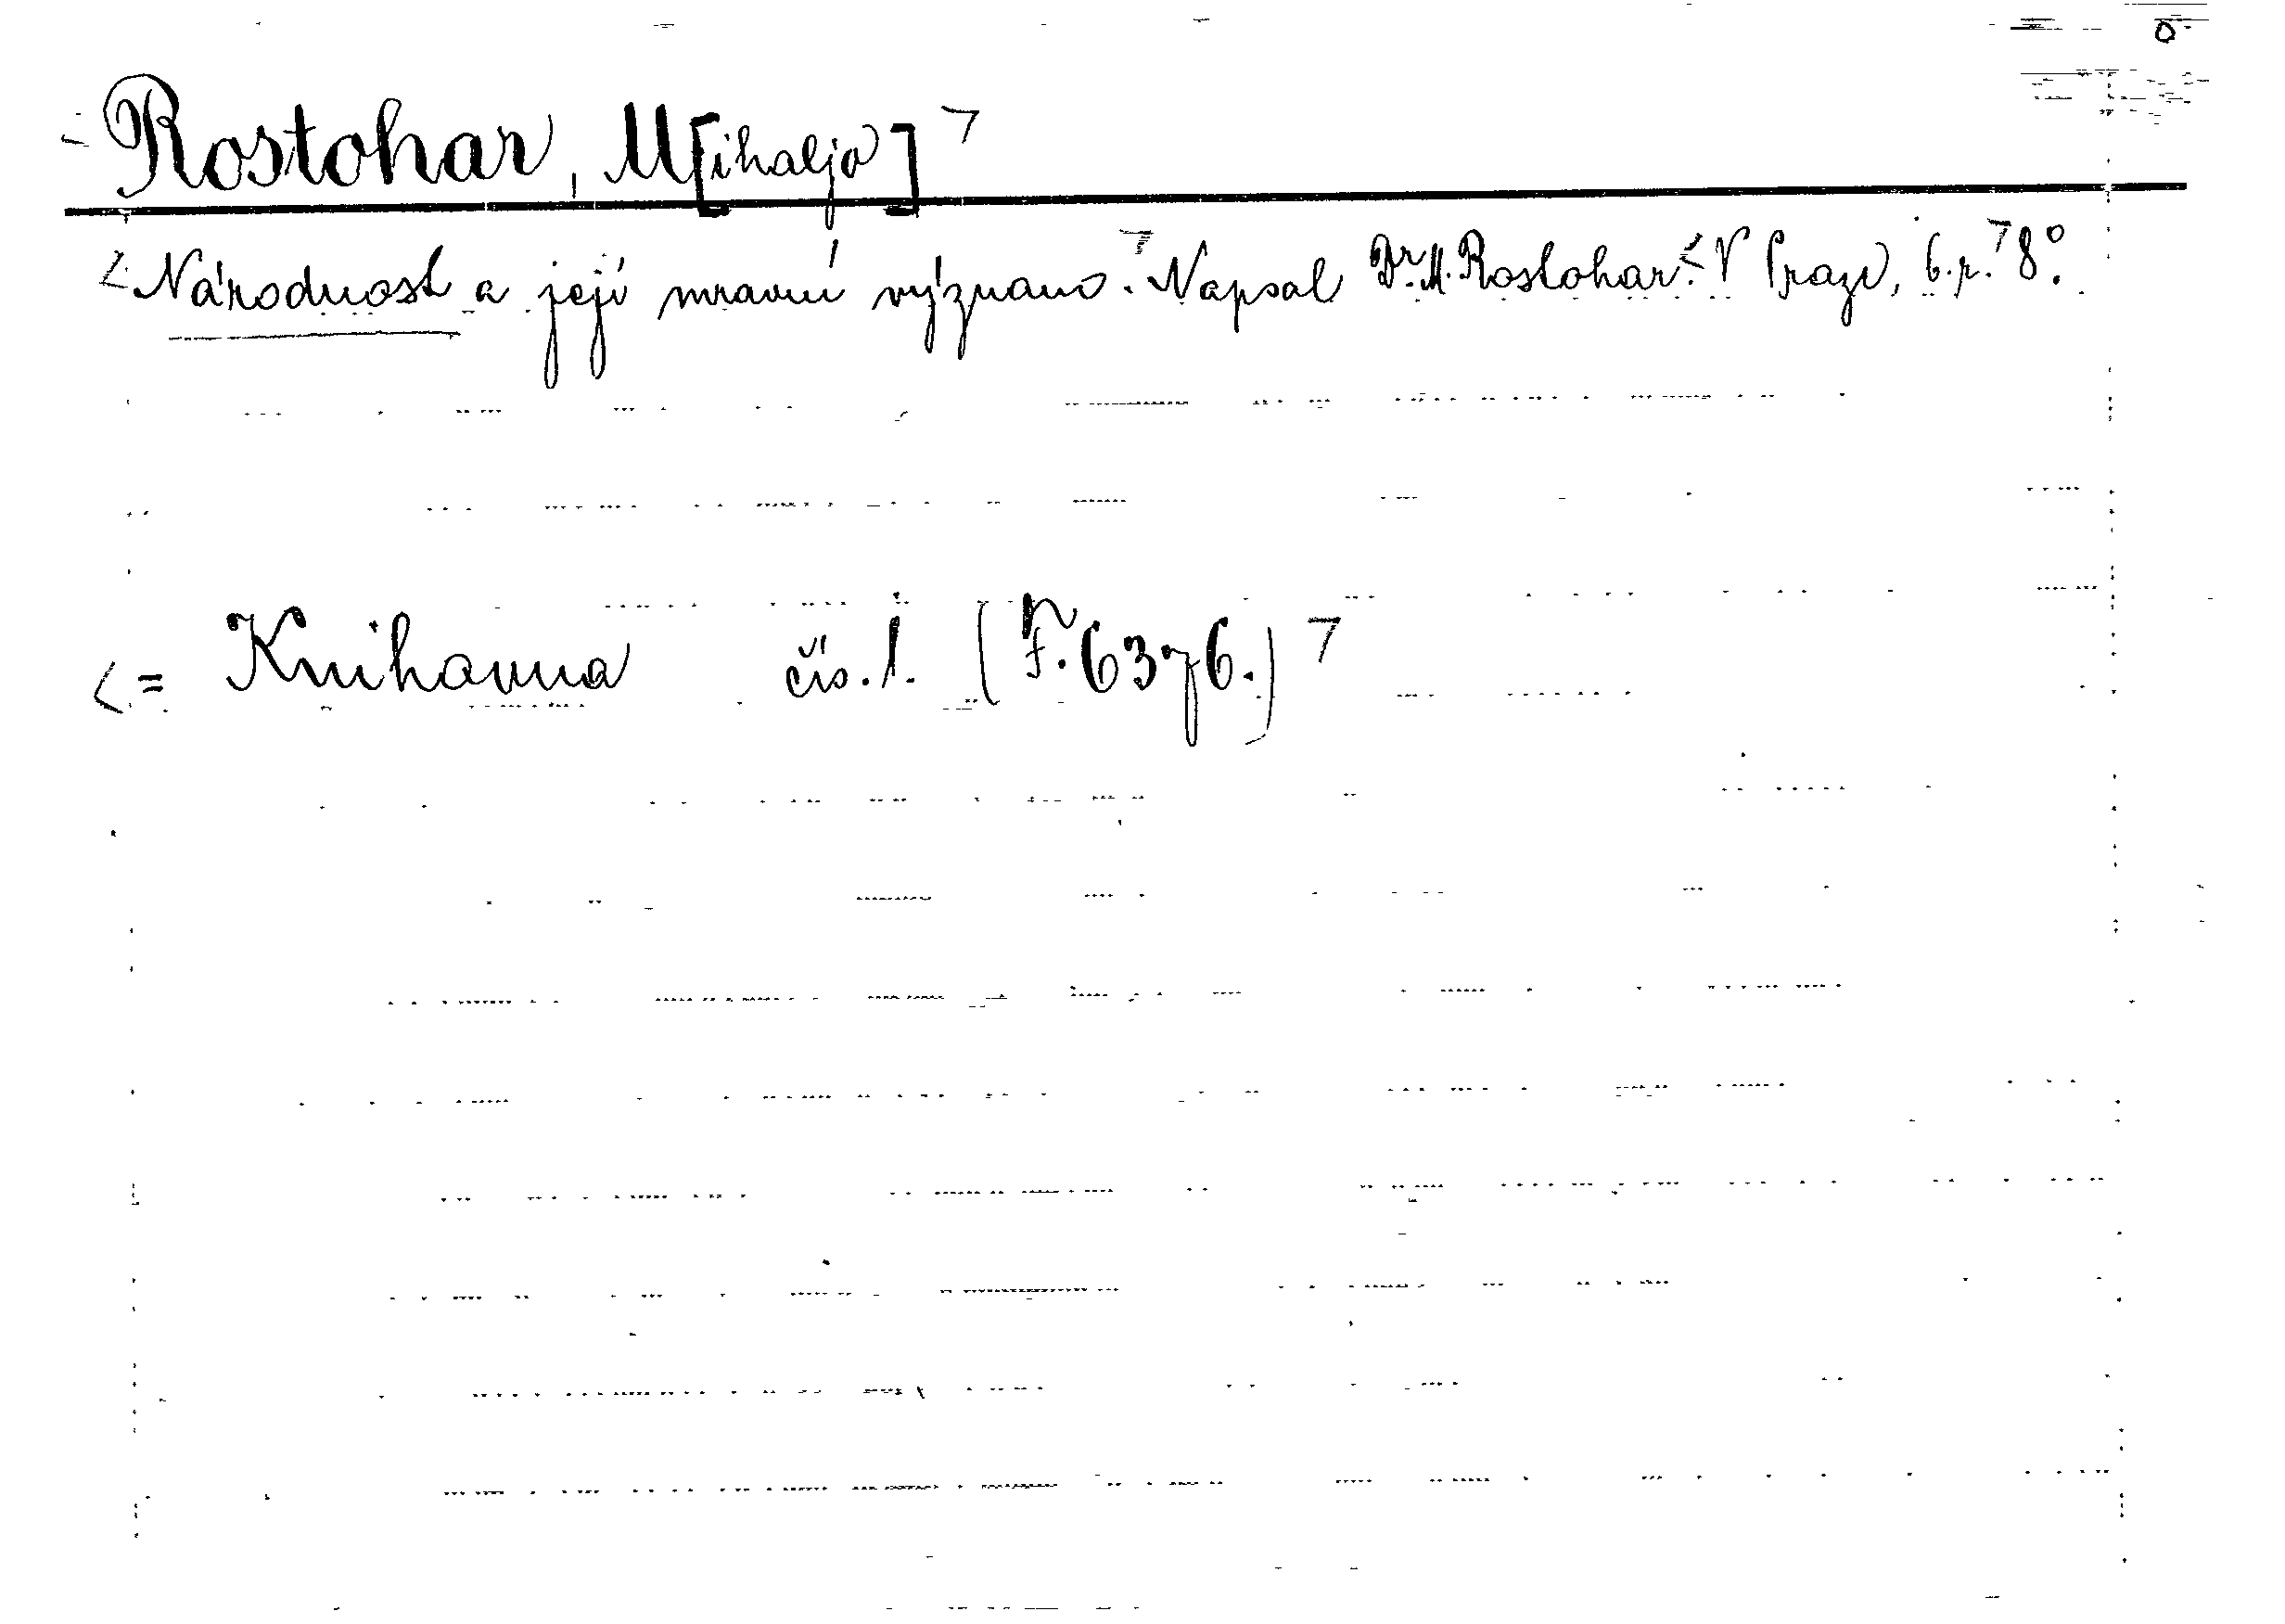 Rostohar, M[ihaljo]
Národnost a její mravní význam. Napsal Dr. M. Rostohar. V Praze, b.r. 8°.
= Knihovna čís. 1. (F. 6376.)